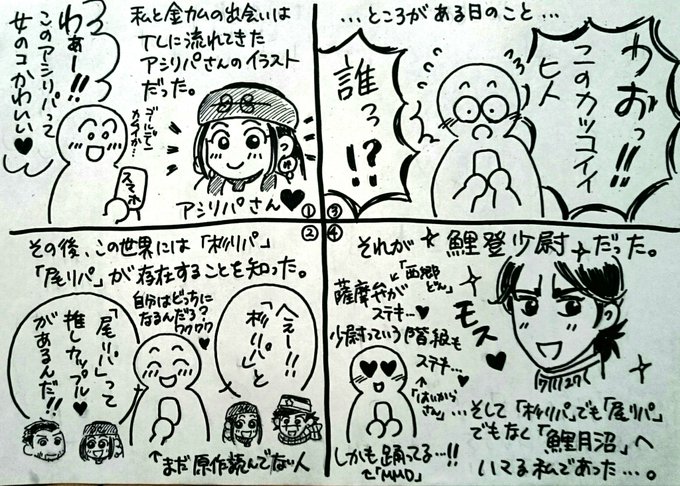 私と金カムの出会いは
TLに流れてきた
アシリパさんのイラスト
だった。
わぁー!!
このアシリパって
女のコかわいい♥
ゴールデン
カムイか…
スマホ
アシリパさん♥
①
その後、この世界には「杉リパ」
「尾リパ」が存在することを知った。
へぇー!!
「杉リパ」と
自分はどっちに
なるんだろ?
ワクワク
「尾リパ」って
推しカップル♥
があるんだ!!
↑まだ原作読んでない人
②
…ところがある日のこと…
わおっ!!
このカッコイイ
ヒト
誰っ!?
③
④
それが鯉登少尉だった。
「西郷どん」
薩摩弁が
ステキ…♥
少尉っていう階級も
ステキ…♥
↑「はいからさん」
モス♥
しかも踊ってる…!!
↑「MMD」
…そして「杉リパ」でも「尾リパ」
でもなく「鯉月沼」へ
いてる私であった…。